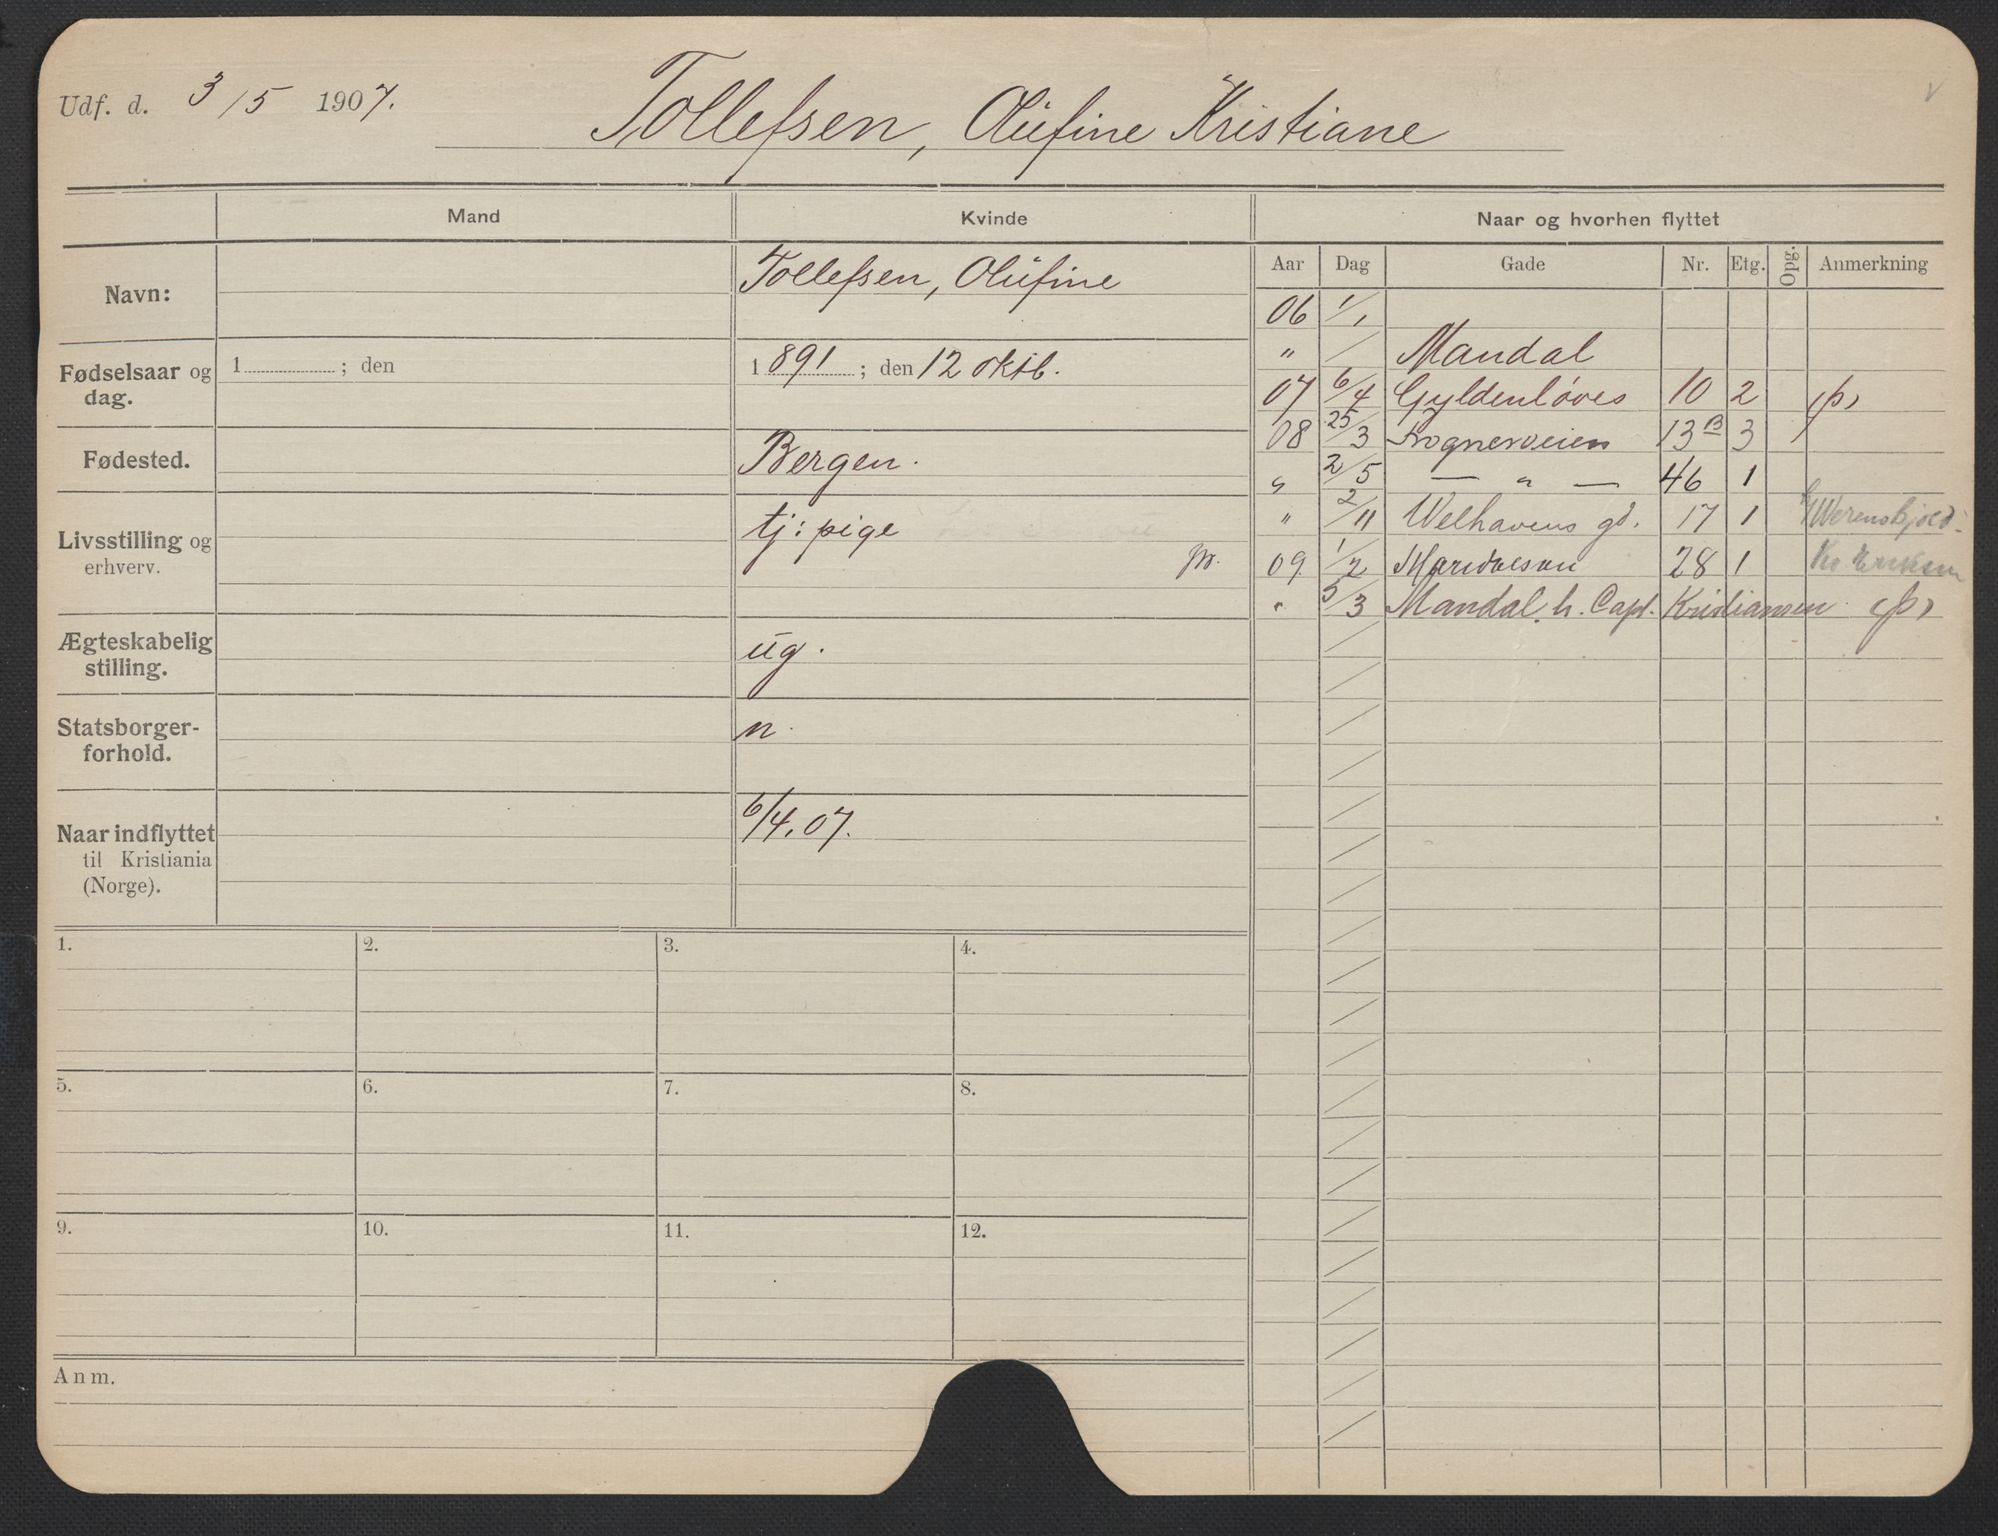 Udf. d. 3/5 1907.
Tollefsen, Olüfine Kristiane
Mand
Kvinde
Naar og hvorhen flyttet
Navn:
Tollefsen, Olüfine
Fødselsaar og dag.
1 ; den
1891 ; den 12 oktb.
Fødested.
Bergen.
Livsstilling og erhverv.
tj: pige
pr.
Ægteskabelig stilling.
üg.
Statsborger-forhold.
n.
Naar indflyttet til Kristiania (Norge).
6/4.07.
Aar Dag Gade Nr. Etg. Opg. Anmerkning
06 1/1
" / Mandal
07 6/4 Gyldenløves 10 2 (p)
08 25/3 Frognerveien 13B 3
" 2/5 — " — 46 1
" 2/11 Welhavens gd. 17 1 Werenskjold
09 1/2 Maridalsvn 28 1 Eriksen
" 5/3 Mandal. h. Capt. Kristiansen (p)
1. 2. 3. 4.
5. 6. 7. 8.
9. 10. 11. 12.
Anm.